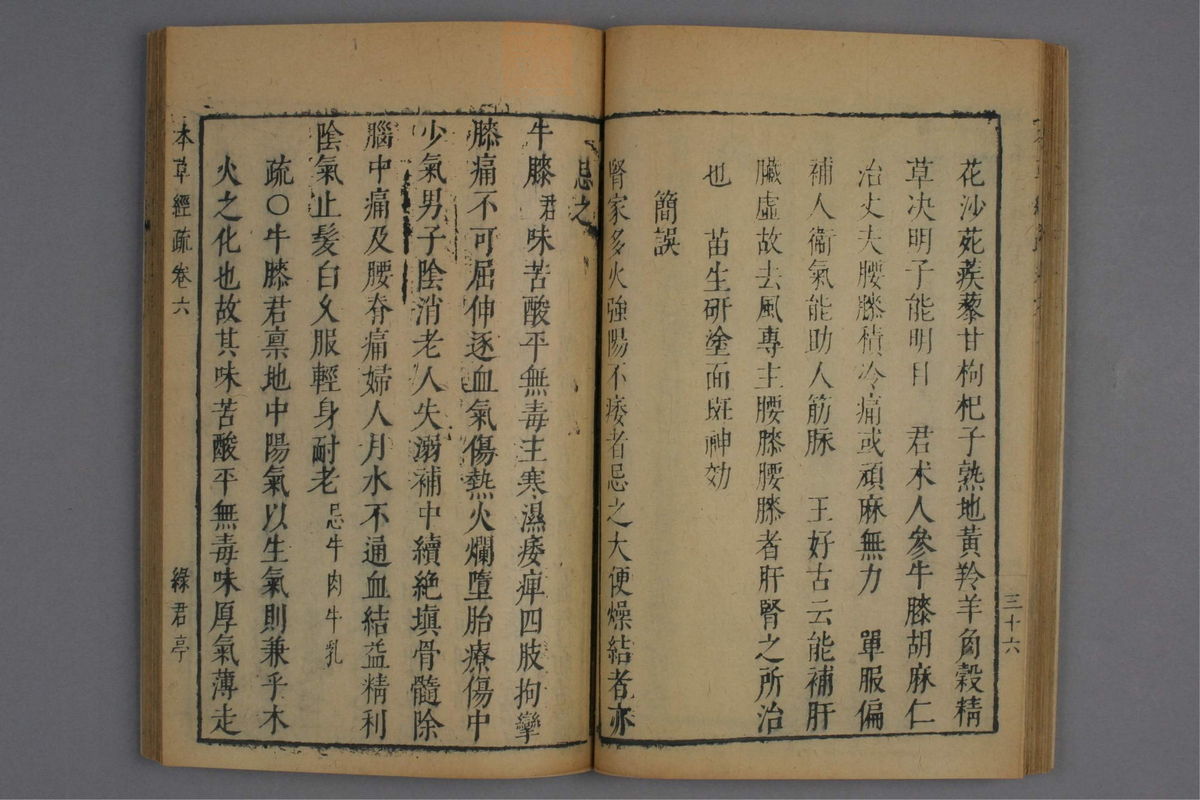 三十六
花沙苑蒺藜甘枸杞子熟地黃羚羊角穀精
草决明子能明目　君术人參牛膝胡麻仁
治丈夫腰膝積冷痛或頑麻無力　單服偏
補人衛氣能助人筋脉　王好古云能補肝
臟虛故去風專主腰膝腰膝者肝腎之所治
也　苗生研塗面斑神効
簡誤
腎家多火強陽不痿者忌之大便燥結者亦
忌之
牛膝君味苦酸平無毒主寒濕痿痺四肢拘攣
膝痛不可屈伸逐血氣傷熱火爛墮胎療傷中
少氣男子陰消老人失溺補中續絶塡骨髓除
腦中痛及腰脊痛婦人月水不通血結益精利
陰氣止髮白久服輕身耐老忌牛肉牛乳
疏〇牛膝君禀地中陽氣以生氣則兼乎木
火之化也故其味苦酸平無毒味厚氣薄走
本草經疏卷六
綠君亭